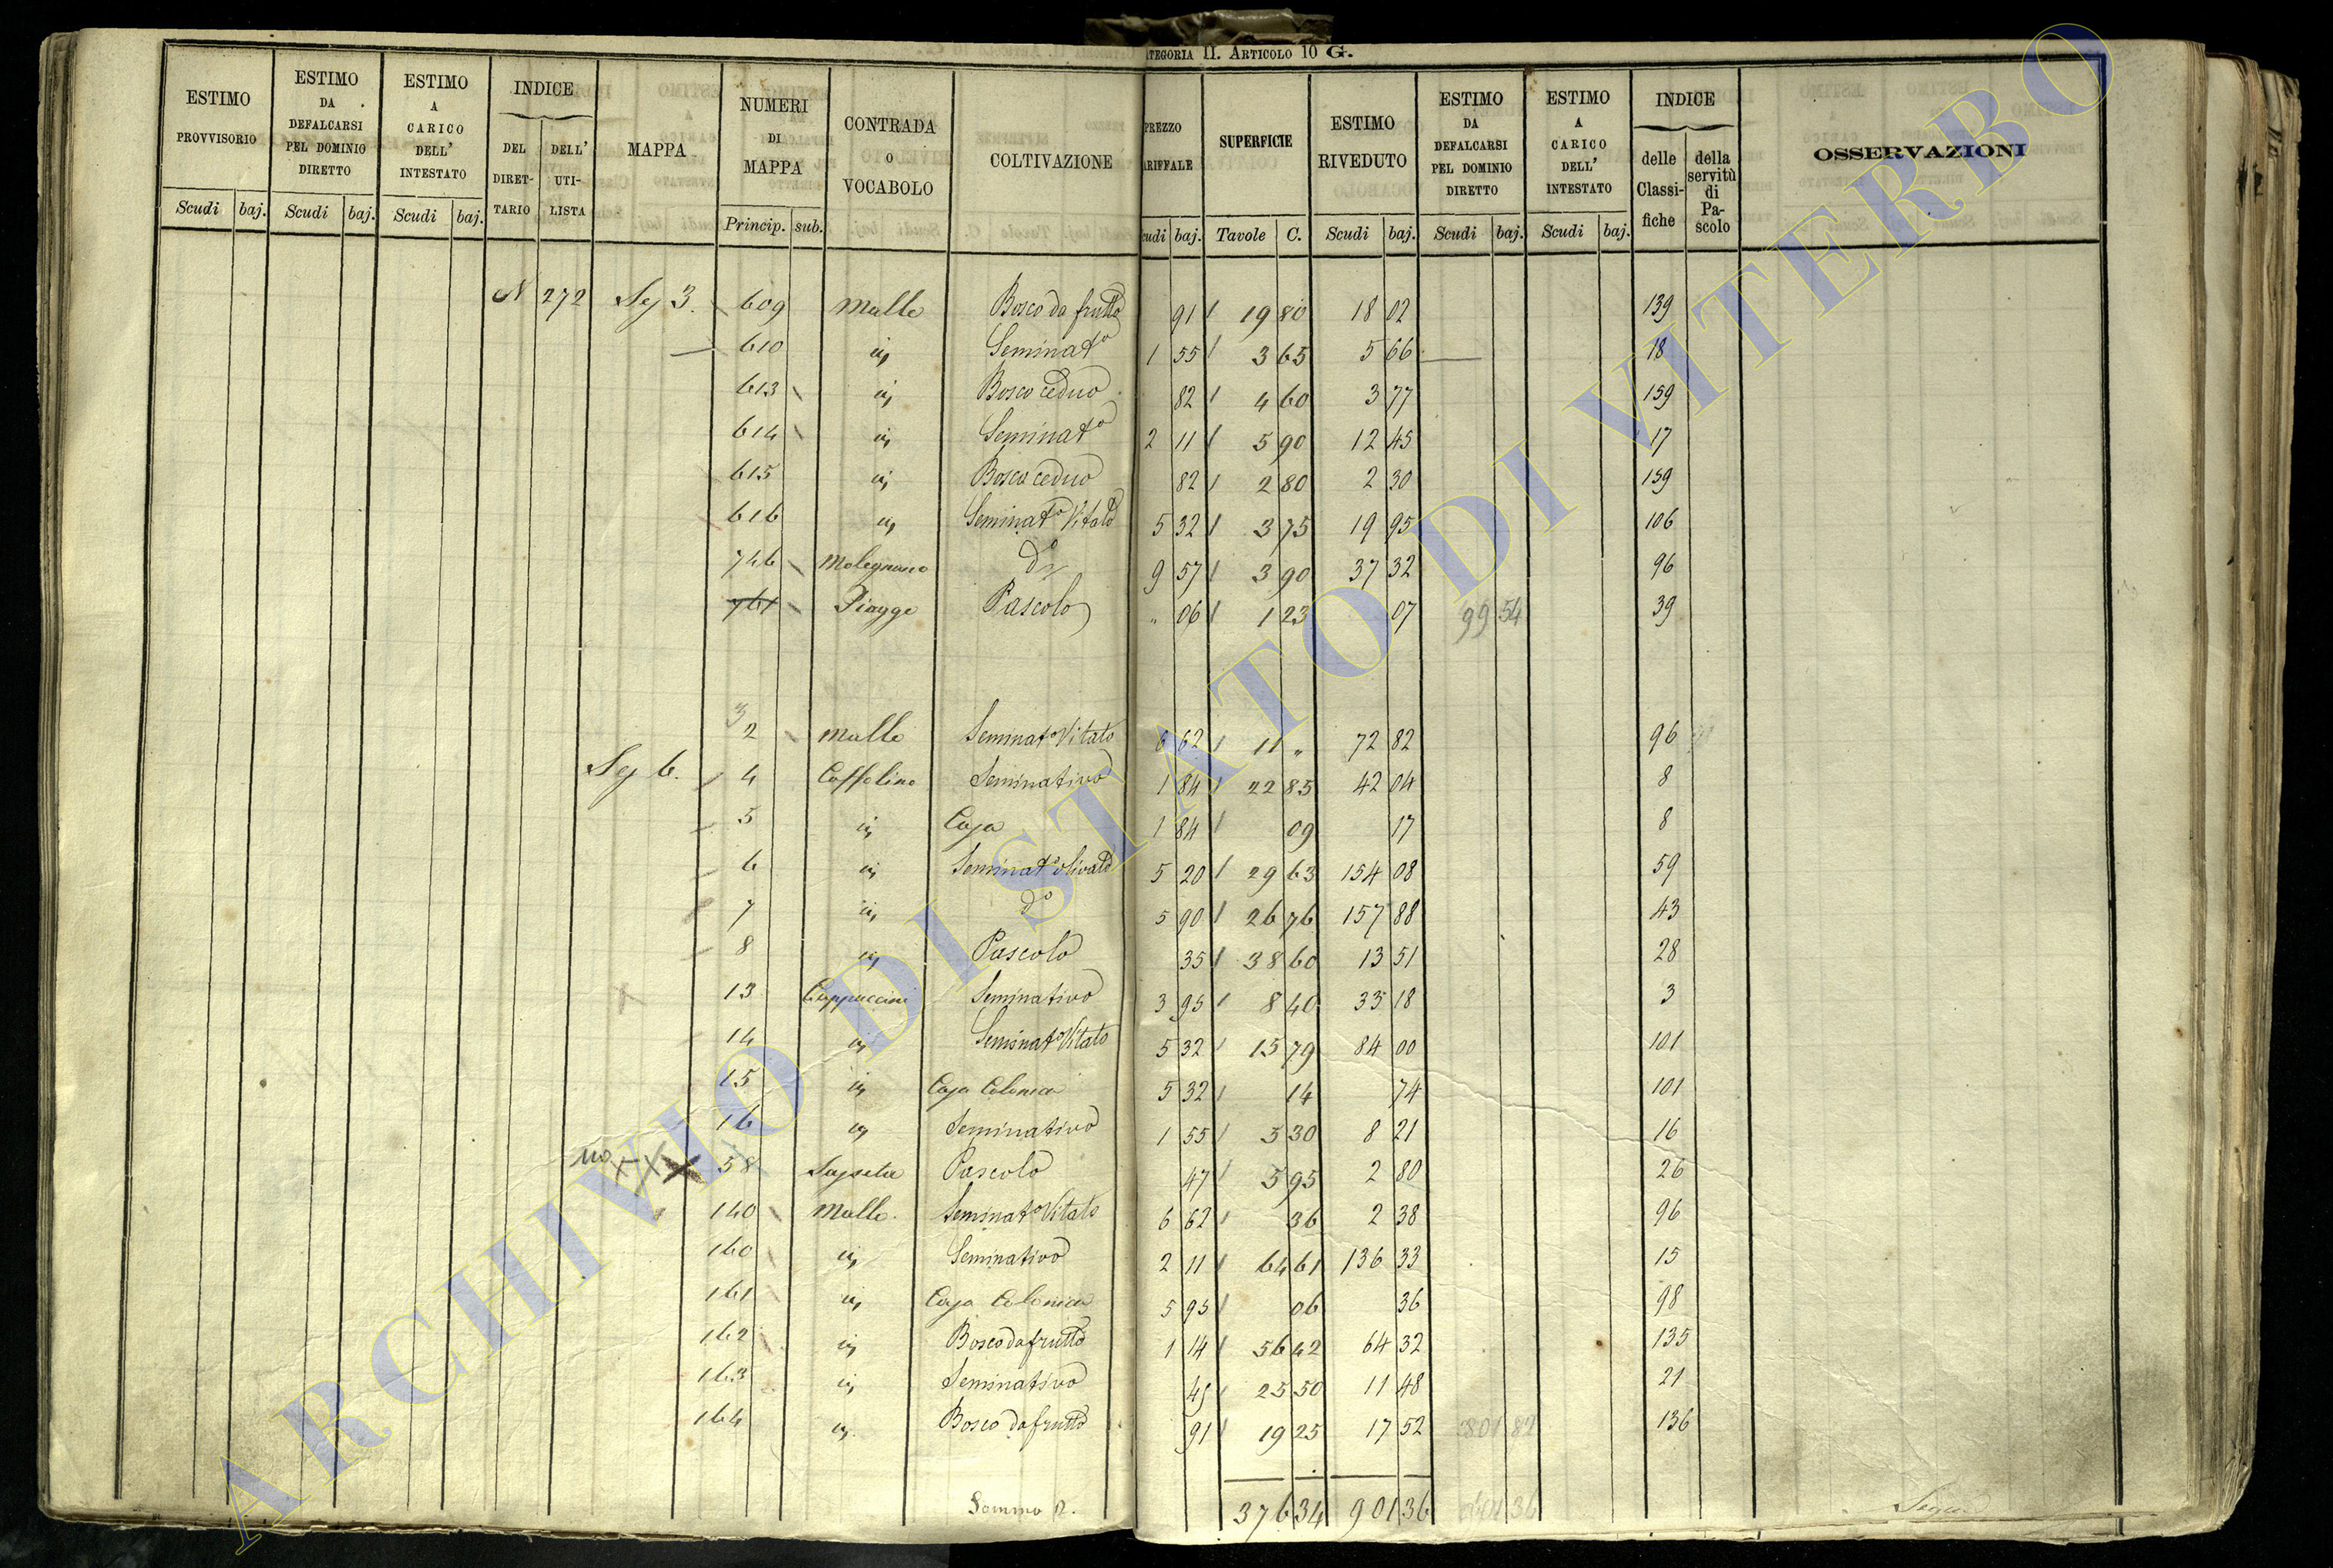 CATEGORIA II. ARTICOLO 10 G.
ESTIMO PROVVISORIO Scudi baj.
ESTIMO DA DEFALCARSI PEL DOMINIO DIRETTO Scudi baj.
ESTIMO A CARICO DELL' INTESTATO Scudi baj.
INDICE DEL DIRETTARIO DELL' UTILISTA
MAPPA
NUMERI DI MAPPA Princip. sub.
CONTRADA O VOCABOLO
COLTIVAZIONE
PREZZO TARIFFALE Scudi baj.
SUPERFICIE Tavole C.
ESTIMO RIVEDUTO Scudi baj.
ESTIMO DA DEFALCARSI PEL DOMINIO DIRETTO Scudi baj.
ESTIMO A CARICO DELL' INTESTATO Scudi baj.
INDICE delle Classifiche della servitù di Pascolo
OSSERVAZIONI
N 272 Seg 3. 609 Malle Bosco da frutto 91 19 80 18 02 139
610 in Seminato 1 55 3 65 5 66 18
613 in Bosco ceduo 82 4 60 3 77 159
614 in Seminato 2 11 5 90 12 45 17
615 in Bosco ceduo 82 2 80 2 30 159
616 in Seminato Vitato 5 32 3 75 19 95 106
746 Molegnano do 9 57 3 90 37 32 96
761 Piagge Pascolo " 06 1 23 07 99 54 39
3
2 Malle Seminato Vitato 6 62 11 " 72 82 96
Seg 6. 4 Coffolino Seminativo 1 84 22 85 42 04 8
5 in Casa 1 84 09 17 8
6 in Seminato olivato 5 20 29 63 154 08 59
7 in do 5 90 26 76 157 88 43
8 in Pascolo 35 38 60 13 51 28
13 Cappuccini Seminativo 3 95 8 40 33 18 3
14 in Seminato Vitato 5 32 15 79 84 00 101
15 in Casa Colonica 5 32 14 74 101
16 in Seminativo 1 55 5 30 8 21 16
no 58 Pascolo 47 5 95 2 80 26
140 Malle Seminato Vitato 6 62 36 2 38 96
160 in Seminativo 2 11 64 61 136 33 15
161 in Casa Colonica 5 95 06 36 98
162 in Bosco da frutto 1 14 56 42 64 32 135
163 in Seminativo 45 25 50 11 48 21
164 in Bosco da frutto 91 19 25 17 52 801 82 136
Somma 376 34 901 36 901 36
Segue
ARCHIVIO DI STATO DI VITERBO